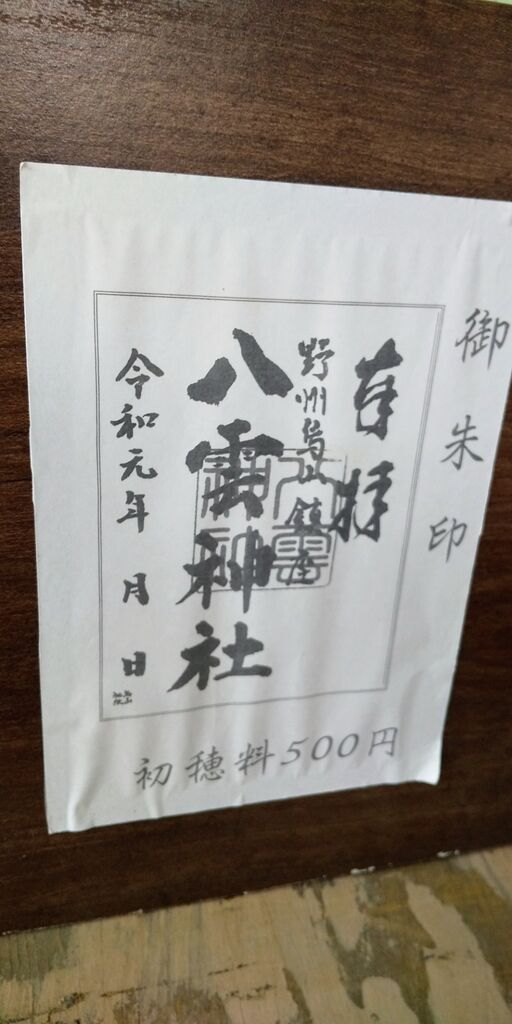 御朱印
奉拝
野州烏山鎮座
八雲神社
令和元年 月 日
初穂料500円